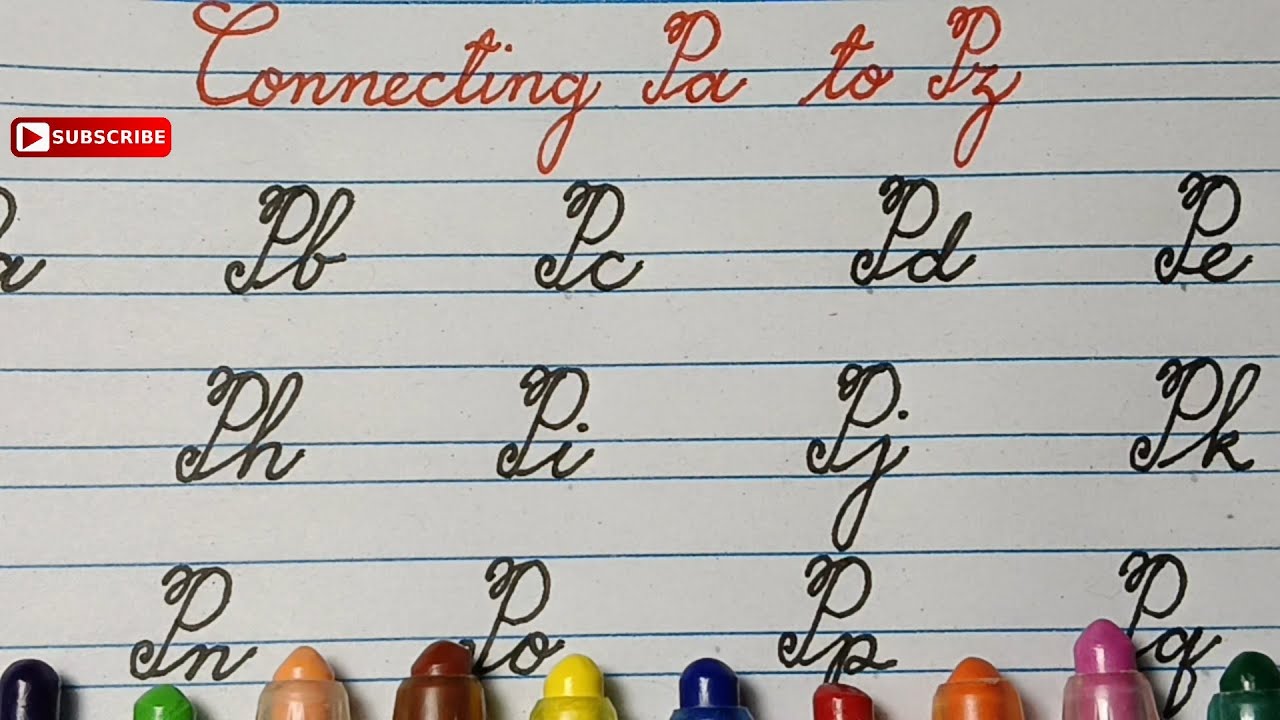 Connecting Pa to Pz
SUBSCRIBE
Pb Pc Pd Pe
Ph Pi Pj Pk
Pn Po Pp Pq